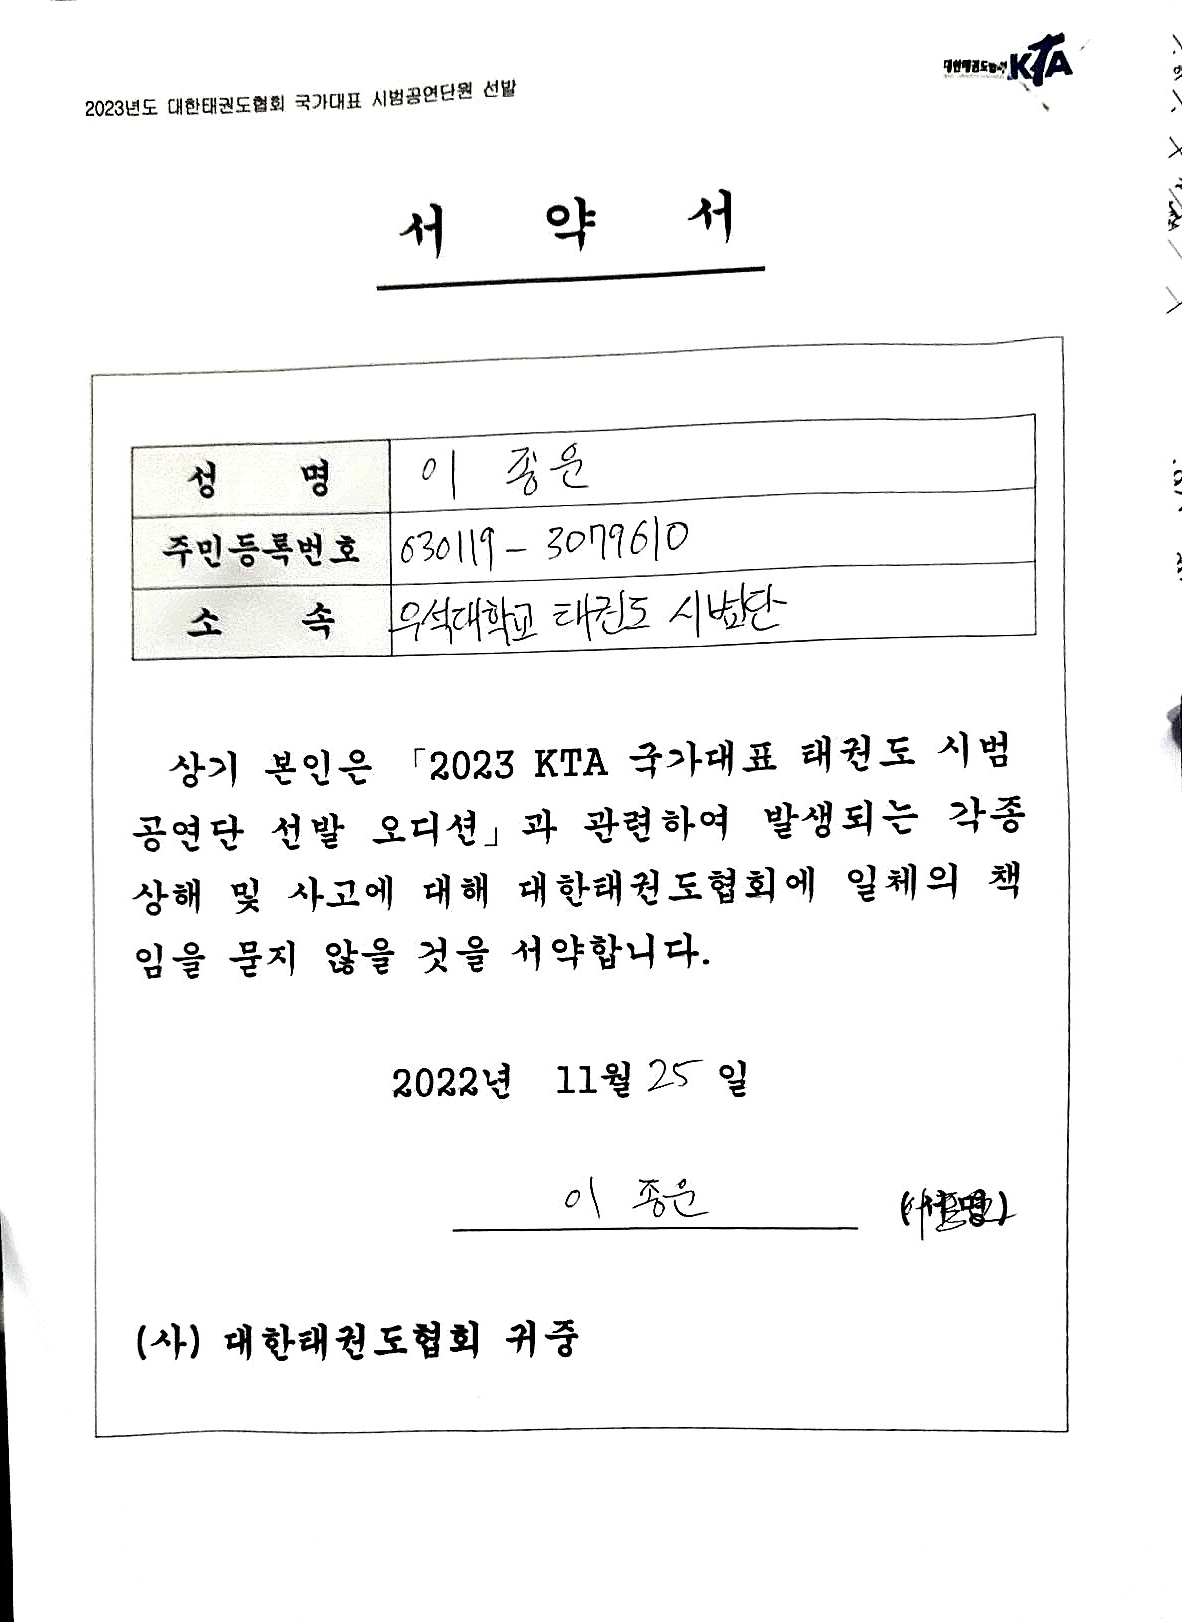 2023년도 대한태권도협회 국가대표 시범공연단원 선발
대한태권도협회 KTA
서 약 서
성 명 이 종운
주민등록번호 630119 - 3079610
소 속 우석대학교 태권도 시범단
상기 본인은 「2023 KTA 국가대표 태권도 시범
공연단 선발 오디션」과 관련하여 발생되는 각종
상해 및 사고에 대해 대한태권도협회에 일체의 책
임을 묻지 않을 것을 서약합니다.
2022년 11월 25 일
이 종운 (서명)
(사) 대한태권도협회 귀중